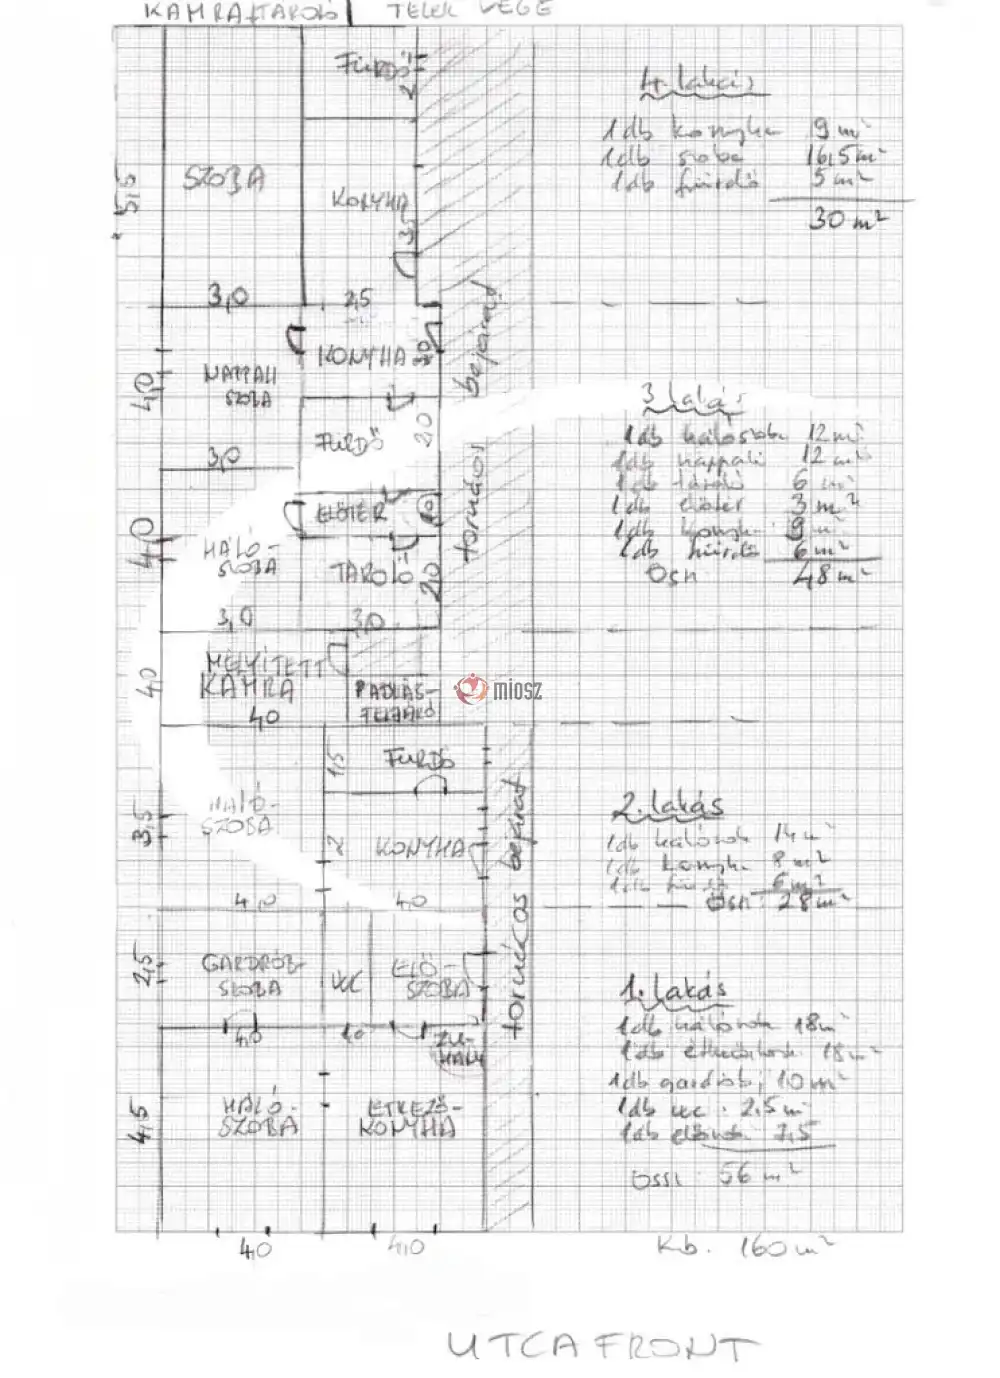 KAMRA+TÁROLÓ TELEK VÉGE
FÜRDŐ
2
SZOBA
KONYHA
5,5
3,5
3,0
2,5
KONYHA
3,0
NAPPALI
SZOBA
4,0
FÜRDŐ
2,0
3,0
ELŐTÉR
1,0
HÁLÓ-
SZOBA
4,0
TÁROLÓ
2,0
3,0
3,0
tornácos bejárat
MÉLYÍTETT
KAMRA
4,0
4,0
PADLÁS-
FELJÁRÓ
miosz
1,5
FÜRDŐ
HÁLÓ-
SZOBA
3,5
2
KONYHA
4,0
4,0
tornácos bejárat
GARDRÓB-
SZOBA
2,5
WC
ELŐ-
SZOBA
4,0
1,0
ZU-
HANY
HÁLÓ-
SZOBA
4,5
ÉTKEZŐ-
KONYHA
4,0
4,0
4. lakás
1 db konyha 9 m²
1 db szoba 16,5 m²
1 db fürdő 5 m²
30 m²
3 lakás
1 db hálószoba 12 m²
1 db nappali 12 m²
1 db tároló 6 m²
1 db előtér 3 m²
1 db konyha 9 m²
1 db fürdő 6 m²
Össz. 48 m²
2. lakás
1 db hálószob 14 m²
1 db konyha 8 m²
1 db fürdő 6 m²
Össz. 28 m²
1. lakás
1 db hálószoba 18 m²
1 db étkezőkony. 18 m²
1 db gardrób 10 m²
1 db wc. 2,5 m²
1 db előszob. 7,5
Össz. 56 m²
Kb. 160 m²
UTCAFRONT